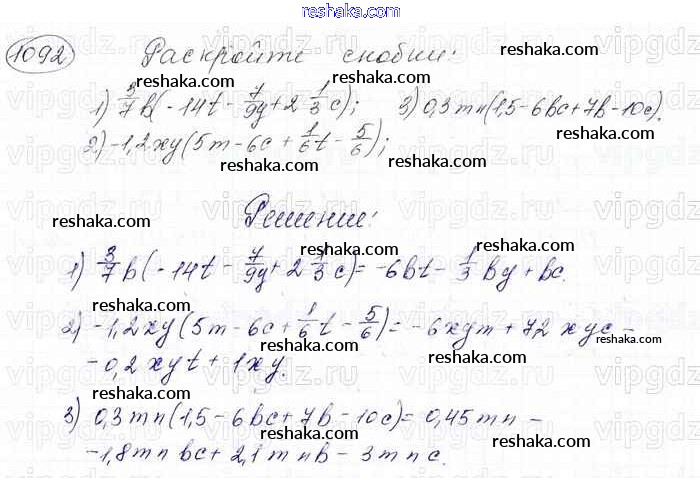 reshaka.com
1092 Раскройте скобки: reshaka.com
1) 3/7 b(-14t - 7/9 y + 2 1/3 c); 3) 0,3mn(1,5-6bc+7b-10c).
reshaka.com reshaka.com
2) -1,2xy(5m-6c+1/6 t - 5/6);
reshaka.com
reshaka.com Решение: reshaka.com
1) 3/7 b(-14t - 7/9 y + 2 1/3 c) = -6bt - 1/3 by + bc.
reshaka.com reshaka.com
2) -1,2xy(5m-6c+1/6 t - 5/6) = -6xym + 72 xyc -
reshaka.com
- 0,2xyt + 1xy.
reshaka.com reshaka.com
3) 0,3mn(1,5-6bc+7b-10c) = 0,45mn -
reshaka.com reshaka.com
-1,8mnbc + 2,1mnb - 3mnc.
reshaka.com